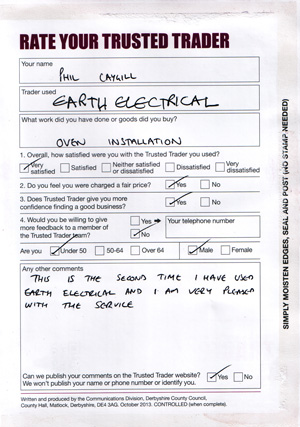 RATE YOUR TRUSTED TRADER
Your name
PHIL CAYGILL
Trader used
EARTH ELECTRICAL
What work did you have done or goods did you buy?
OVEN INSTALLATION
1. Overall, how satisfied were you with the Trusted Trader you used?
Very satisfied Satisfied Neither satisfied or dissatisfied Dissatisfied Very dissatisfied
2. Do you feel you were charged a fair price? Yes No
3. Does Trusted Trader give you more confidence finding a good business? Yes No
4. Would you be willing to give more feedback to a member of the Trusted Trader team? Yes No
Your telephone number
Are you Under 50 50-64 Over 64 Male Female
Any other comments
THIS IS THE SECOND TIME I HAVE USED
EARTH ELECTRICAL AND I AM VERY PLEASED
WITH THE SERVICE
Can we publish your comments on the Trusted Trader website? Yes No
We won't publish your name or phone number or identify you.
Written and produced by the Communications Division, Derbyshire County Council,
County Hall, Matlock, Derbyshire, DE4 3AG. October 2013. CONTROLLED (when complete).
SIMPLY MOISTEN EDGES, SEAL AND POST (NO STAMP NEEDED)